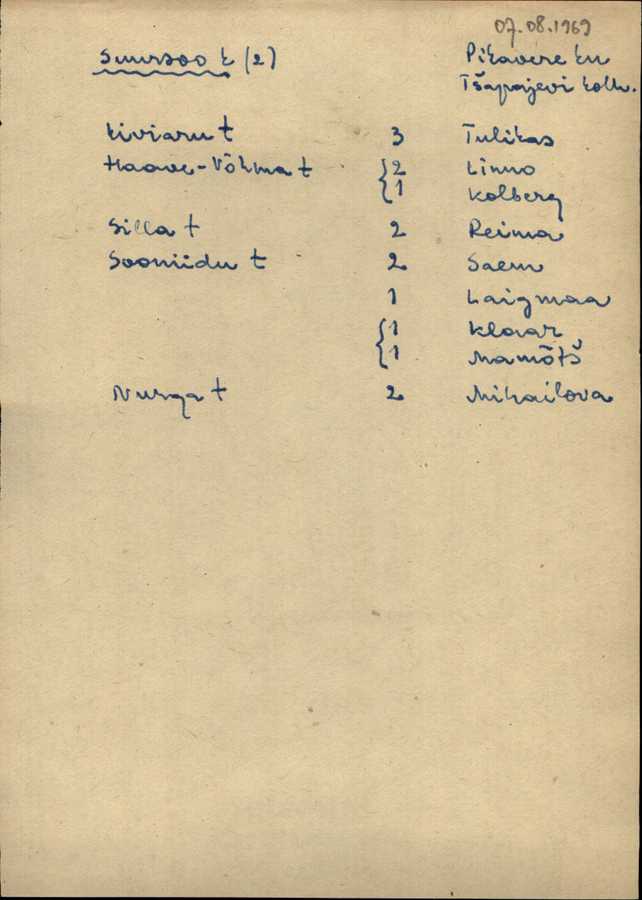 07.08.1969
Suursoo k (2)
Pikavere kn
Tšapajevi kolh.
Kiviaru t 3 Tulikas
Haava-Võhma t {2 Linno
{1 Kolberg
Silla t 2 Reima
Sooniidu t 2 Saem
1 Laigmaa
{1 Klaar
{1 Mamõtš
Nurga t 2 Mihailova